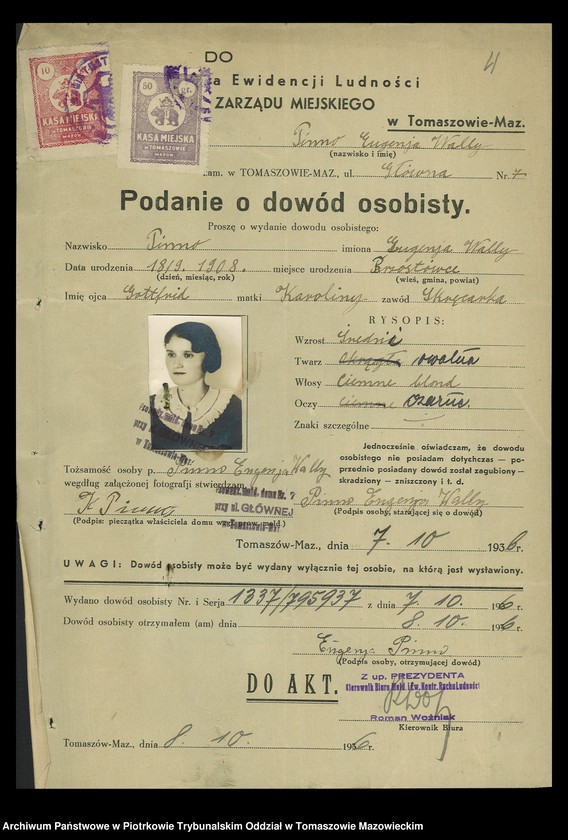 DO
4
a Ewidencji Ludności
ZARZĄDU MIEJSKIEGO
w Tomaszowie-Maz.
10
KASA MIEJSKA
W TOMASZOWIE
MAZOW.
50 gr.
KASA MIEJSKA
W TOMASZOWIE
MAZOW.
Pinno Eugenja Wally
(nazwisko i imię)
zam. w TOMASZOWIE-MAZ., ul. Główna Nr. 7
Podanie o dowód osobisty.
Proszę o wydanie dowodu osobistego:
Nazwisko Pinno imiona Eugenja Wally
Data urodzenia 18/9. 1908. miejsce urodzenia Brzostówce
(dzień, miesiąc, rok) (wieś, gmina, powiat)
Imię ojca Gottfrid matki Karoliny zawód Skręcarka
RYSOPIS:
Wzrost średni
Twarz okrągła owalna
Włosy ciemne blond
Oczy ciemne czarne.
Znaki szczególne
Jednocześnie oświadczam, że dowodu
osobistego nie posiadam dotychczas — po-
przednio posiadany dowód został zagubiony -
skradziony - zniszczony i t. d.
Tożsamość osoby p. Pinno Eugenja Wally
według załączonej fotografji stwierdzam
Prowadz. meld. domu Nr. 7
przy ul. GŁÓWNEJ
w Tomaszowie-Maz.
K Pinno
Pinno Eugenja Wally
(Podpis: pieczątka właściciela domu wzgl. prow. meld.) (Podpis osoby, starającej się o dowód)
Tomaszów-Maz., dnia 7. 10 1936 r.
UWAGI: Dowód osobisty może być wydany wyłącznie tej osobie, na którą jest wystawiony.
Wydano dowód osobisty Nr. i Serja 1337/795937 z dnia 7. 10. 1936 r.
Dowód osobisty otrzymałem (am) dnia 8. 10. 1936 r.
Eugenja Pinno
(Podpis osoby, otrzymującej dowód)
DO AKT.
Z up. PREZYDENTA
Kierownik Biura Meld. i Ew. Kontr. Ruchu Ludności
Roman Woźniak
Kierownik Biura
Tomaszów-Maz., dnia 8. 10. 1936 r.
Archiwum Państwowe w Piotrkowie Trybunalskim Oddział w Tomaszowie Mazowieckim